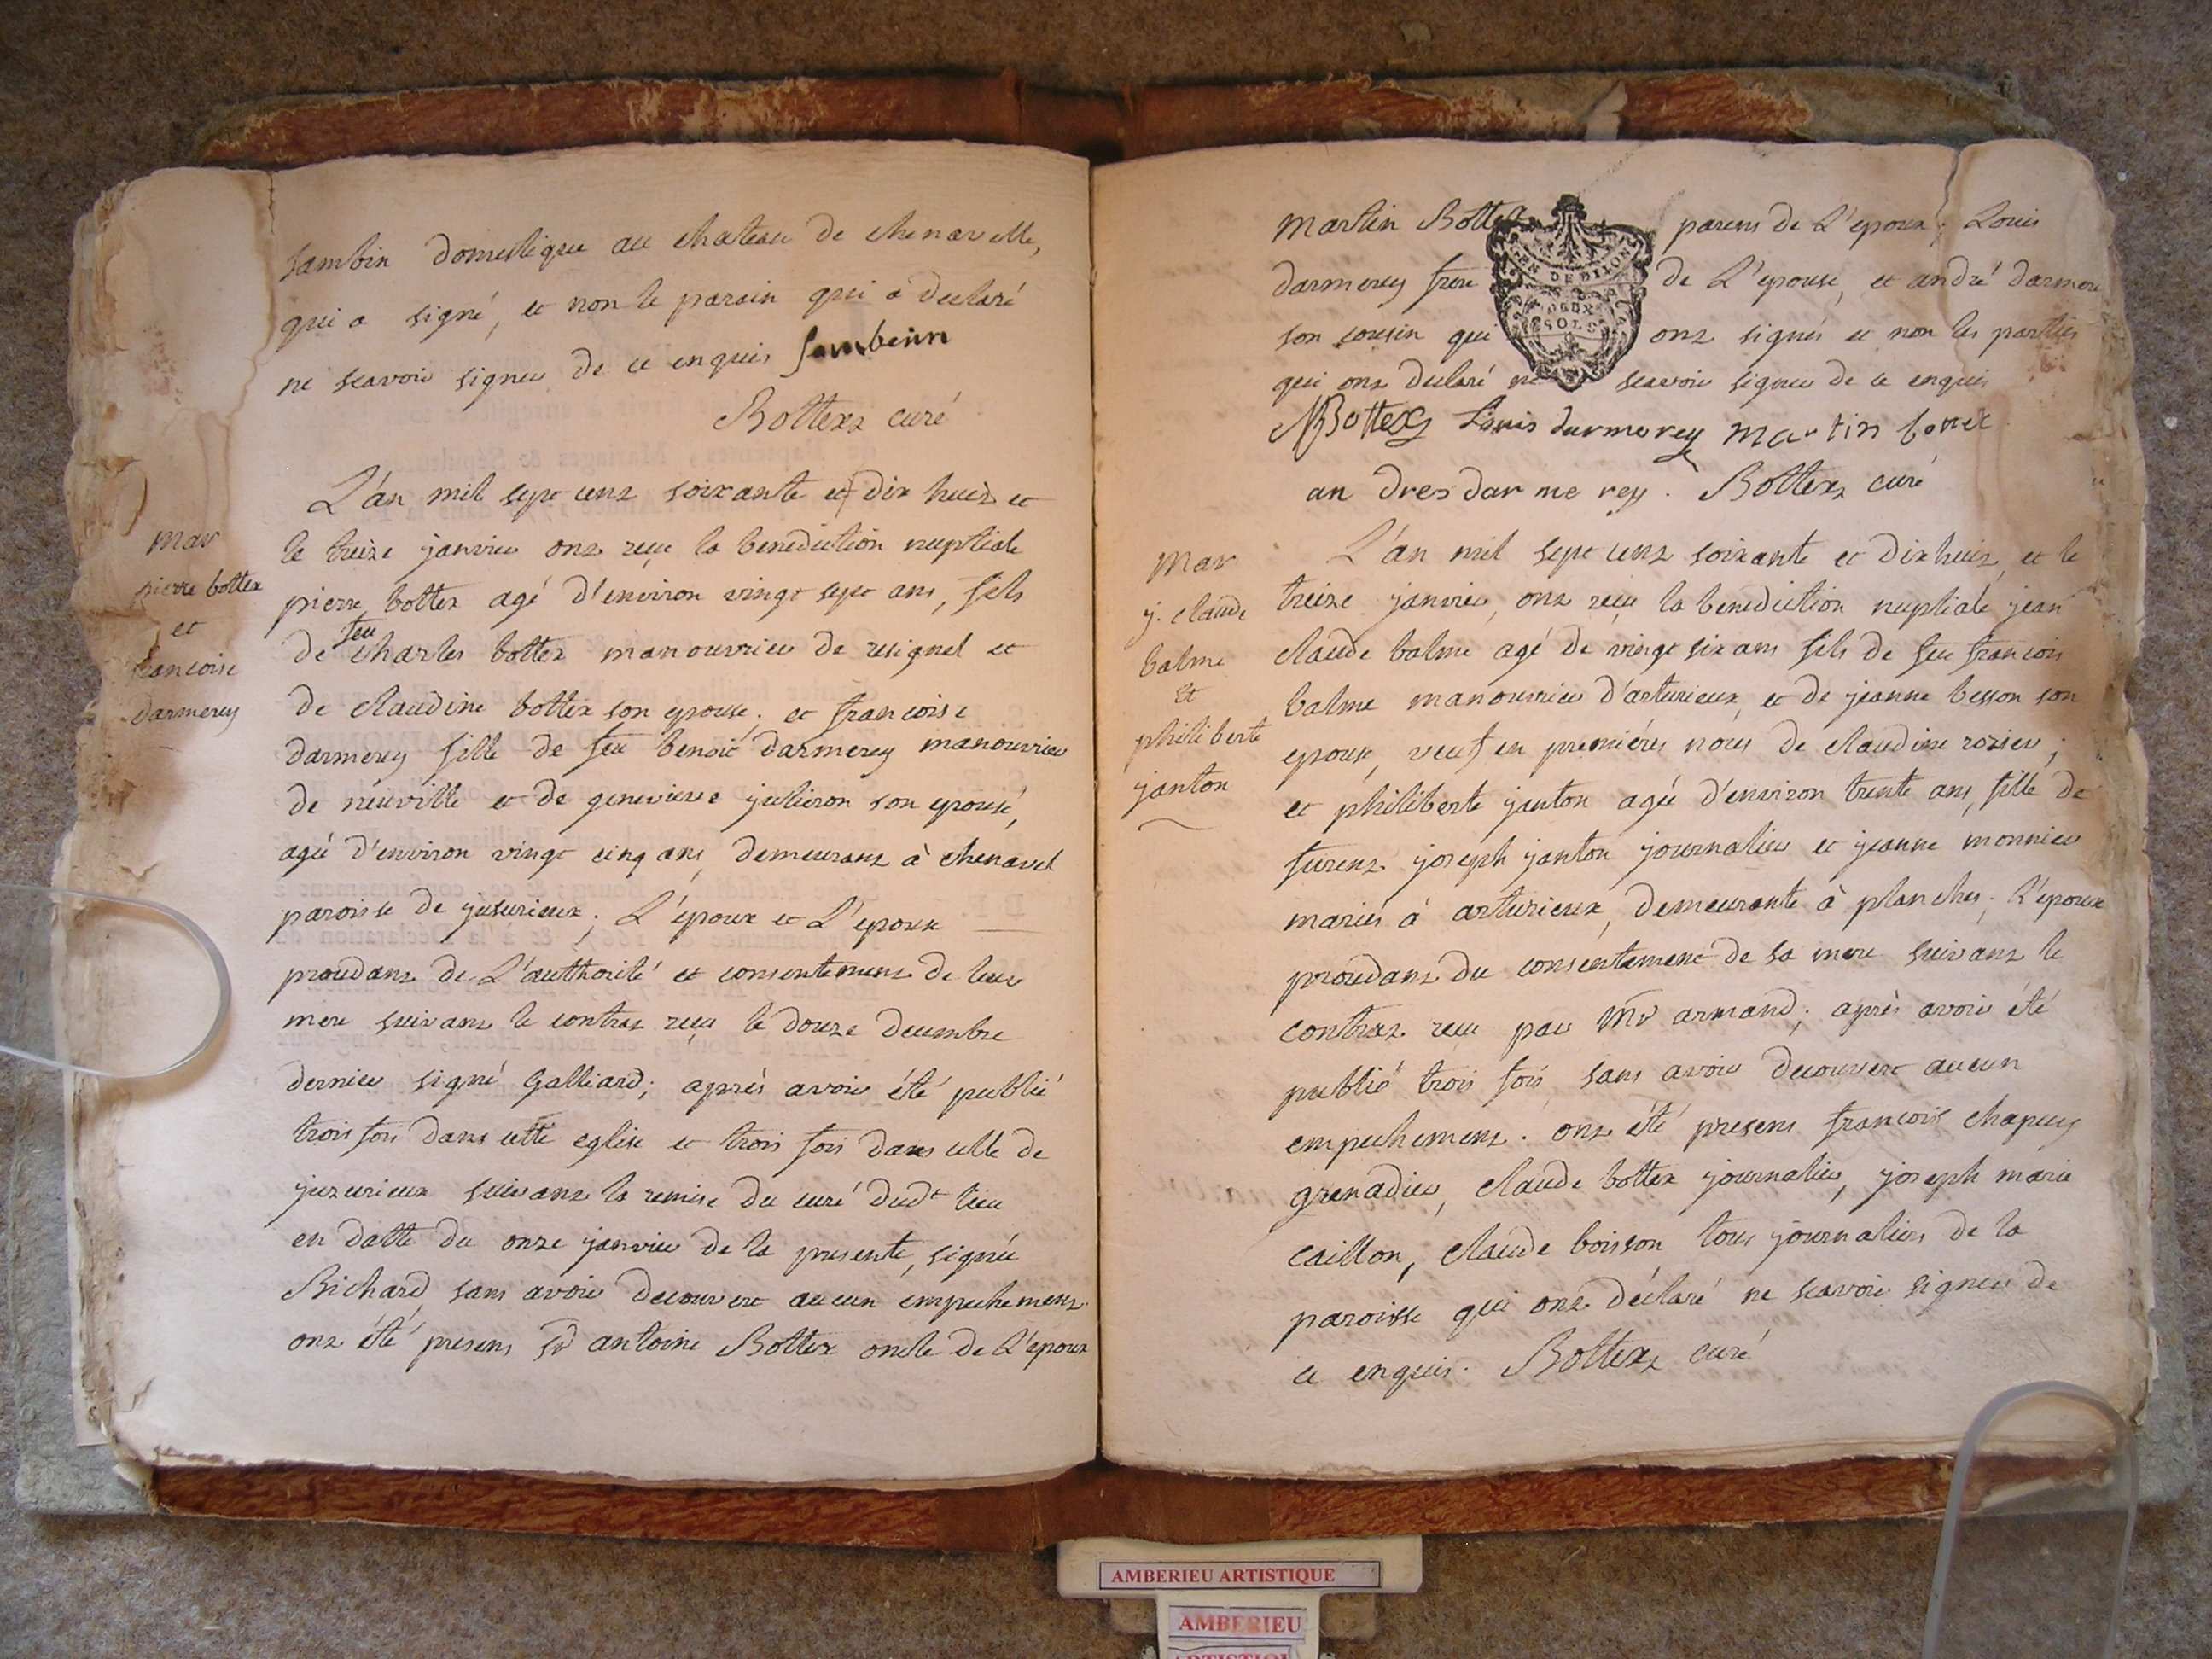 sambin domestique au chateau de chenavelle,
qui a signé, et non le parain qui a declaré
ne scavoir signer de ce enquis sambein
Bottex curé
mar
pierre bottex
et
francoise
darmerey
L'an mil sept cent soixante et dix huit et
le treize janvier ont reçu la benediction nuptiale
pierre bottex agé d'environ vingt sept ans, fils
de feu charles bottex manouvrier de resignel et
de claudine bottex son epouse; et francoise
darmerey fille de feu benoit darmerey manouvrier
de neuville et de genevieve julieron son epouse,
agée d'environ vingt cinq ans, demeurant à chenavel
paroisse de jusurieux; L'epoux et L'epouse
procedant de L'authorité et consentement de leur
mere suivant le contrat reçu le douze decembre
dernier signé Galliard; après avoir été publié
trois fois dans cette eglise et trois fois dans celle de
juzurieux suivant la remise du curé dudt lieu
en datte du onze janvier de la presente, signée
Richard, sans avoir decouvert aucun empechement.
ont été presens sr antoine Bottex oncle de L'epoux
martin Bottex parens de L'epoux; Louis
darmerey frere de L'epouse, et andré darmere
son cousin qui ont signés et non les parties
qui ont declaré ne scavoir signer de ce enquis
GEN DE DIJON
DEUX
SOLS
Bottex Louis darmerey martin botex
an dres dar me rey. Bottex curé
mar
j. claude
balme
et
philiberte
janton
L'an mil sept cent soixante et dix huit, et le
treize janvier, ont reçu la benediction nuptiale jean
claude balme agé de vingt six ans fils de feu francois
balme manouvrier d'arturieux, et de jeanne besson son
epouse, veuf en premières noces de claudine rosier;
et philiberte janton agée d'environ trente ans, fille de
furent joseph janton journalier et jeanne monnier
mariés à arturieux, demeurante à planches; L'epoux
procedant du consentement de sa mere suivant le
contrat reçu par Mr armand; après avoir été
publié trois fois sans avoir decouvert aucun
empechement. ont été presens francois chapuy
grenadier, claude bottex journalier, joseph marie
caillon, claude boisson tous journaliers de la
paroisse qui ont déclaré ne scavoir signer de
ce enquis. Bottex curé
AMBERIEU ARTISTIQUE
AMBERIEU